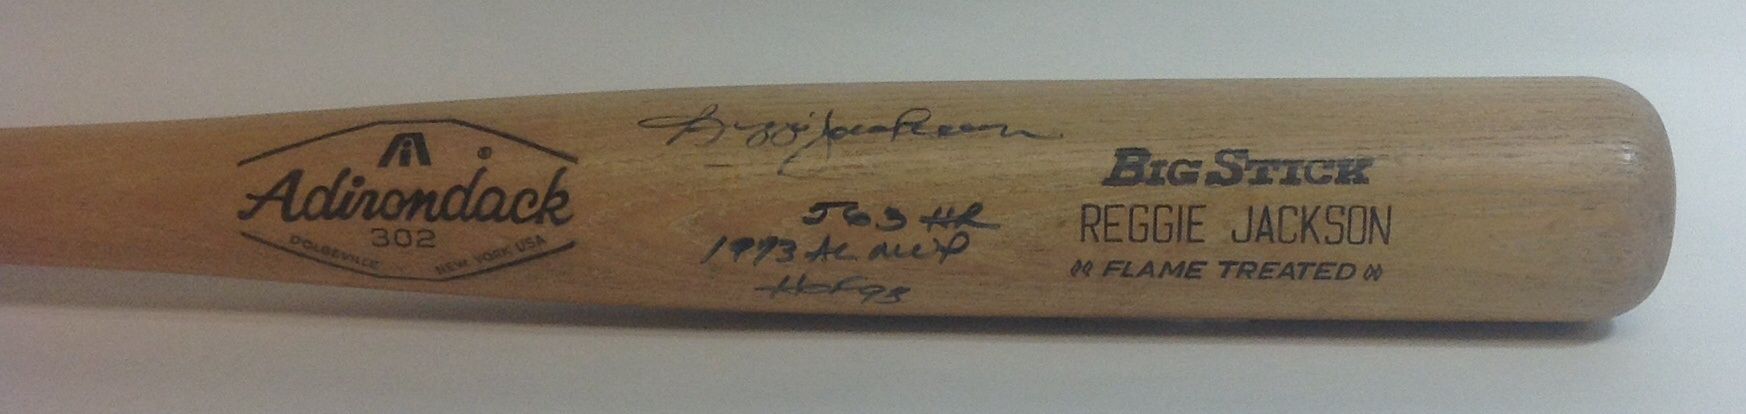 Adirondack
302
DOLGEVILLE NEW YORK USA
Reggie Jackson
563 HR
1973 AL MVP
HOF 93
BIG STICK
REGGIE JACKSON
FLAME TREATED